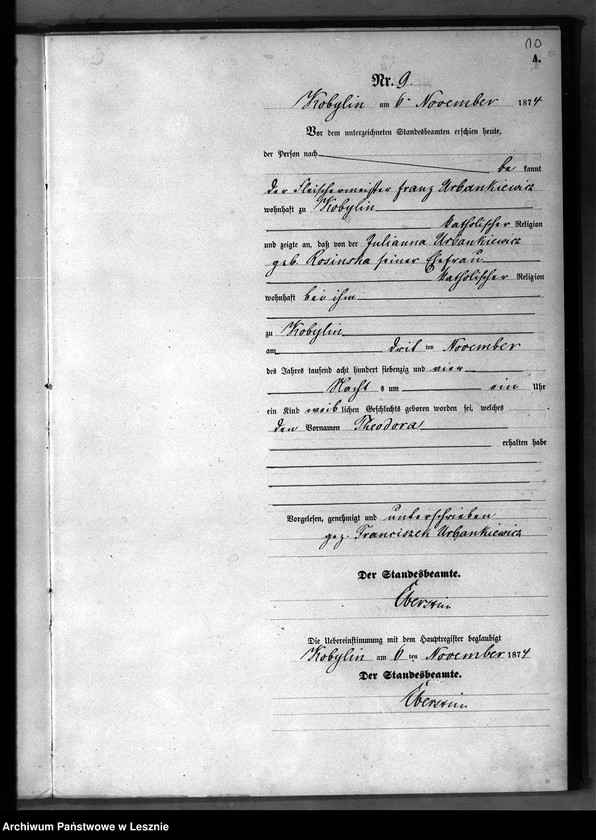 10
A.
Nr. 9.
Kobylin am 6ᵗ November 1874
Vor dem unterzeichneten Standesbeamten erschien heute,
der Person nach
be kannt
der Fleischermeister Franz Urbankiewicz
wohnhaft zu Kobylin
katholischer Religion
und zeigte an, daß von der Julianna Urbankiewicz
geb. Rosinska seiner Ehefrau
katholischer Religion
wohnhaft bei ihm
zu Kobylin
am dritten November
des Jahres tausend acht hundert siebenzig und vier
Nachts um ein Uhr
ein Kind weiblichen Geschlechts geboren worden sei, welches
den Vornamen Theodora
erhalten habe
Vorgelesen, genehmigt und unterschrieben
gez. Franciszek Urbankiewicz
Der Standesbeamte.
Die Uebereinstimmung mit dem Hauptregister beglaubigt
Kobylin am 6 ten November 1874
Der Standesbeamte.
Archiwum Państwowe w Lesznie